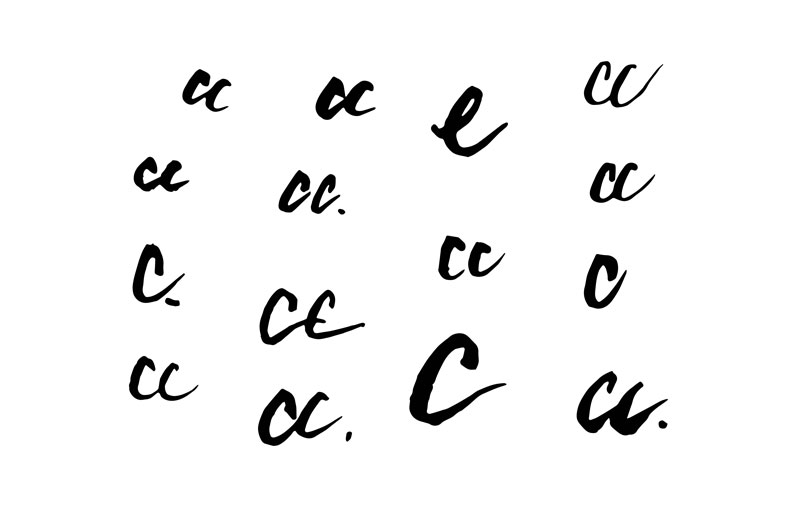 cc cc e cc
cc cc. cc
c. cc c
cc cc
cc. c cc.